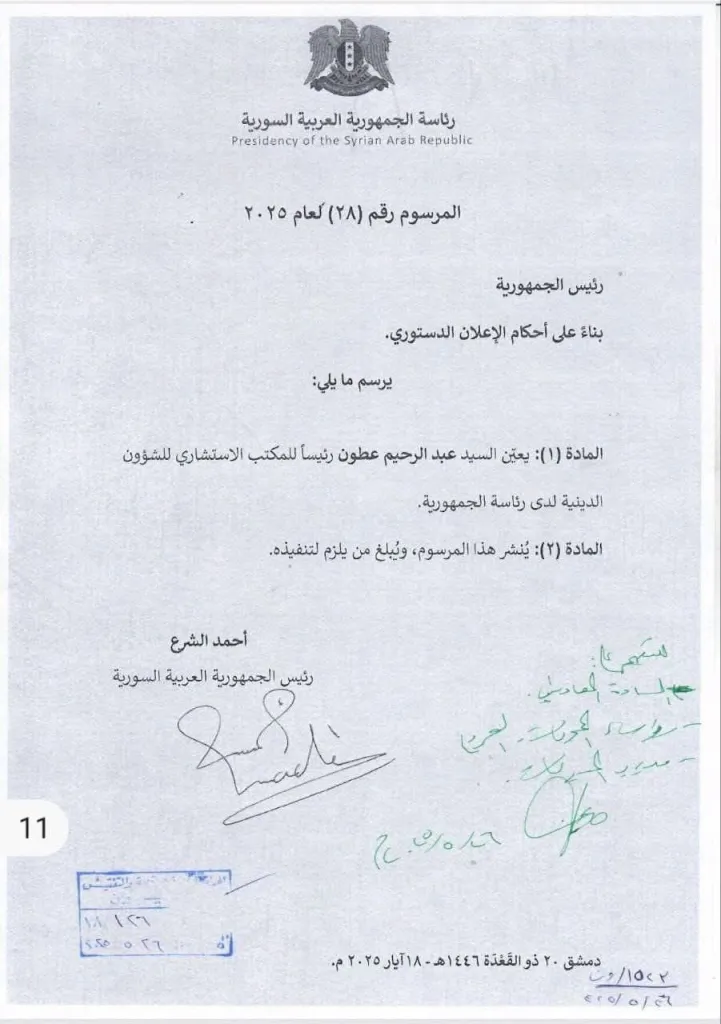 رئاسة الجمهورية العربية السورية
Presidency of the Syrian Arab Republic
المرسوم رقم (٢٨) لعام ٢٠٢٥
رئيس الجمهورية
بناءً على أحكام الإعلان الدستوري.
يرسم ما يلي:
المادة (١): يعيّن السيد عبد الرحيم عطون رئيساً للمكتب الاستشاري للشؤون
الدينية لدى رئاسة الجمهورية.
المادة (٢): يُنشر هذا المرسوم، ويُبلغ من يلزم لتنفيذه.
أحمد الشرع
رئيس الجمهورية العربية السورية
السادة
11
والتفتيش
١٨/١٢٦
دمشق ٢٠ ذو القَعْدَة ١٤٤٦هـ - ١٨ آيار ٢٠٢٥ م.